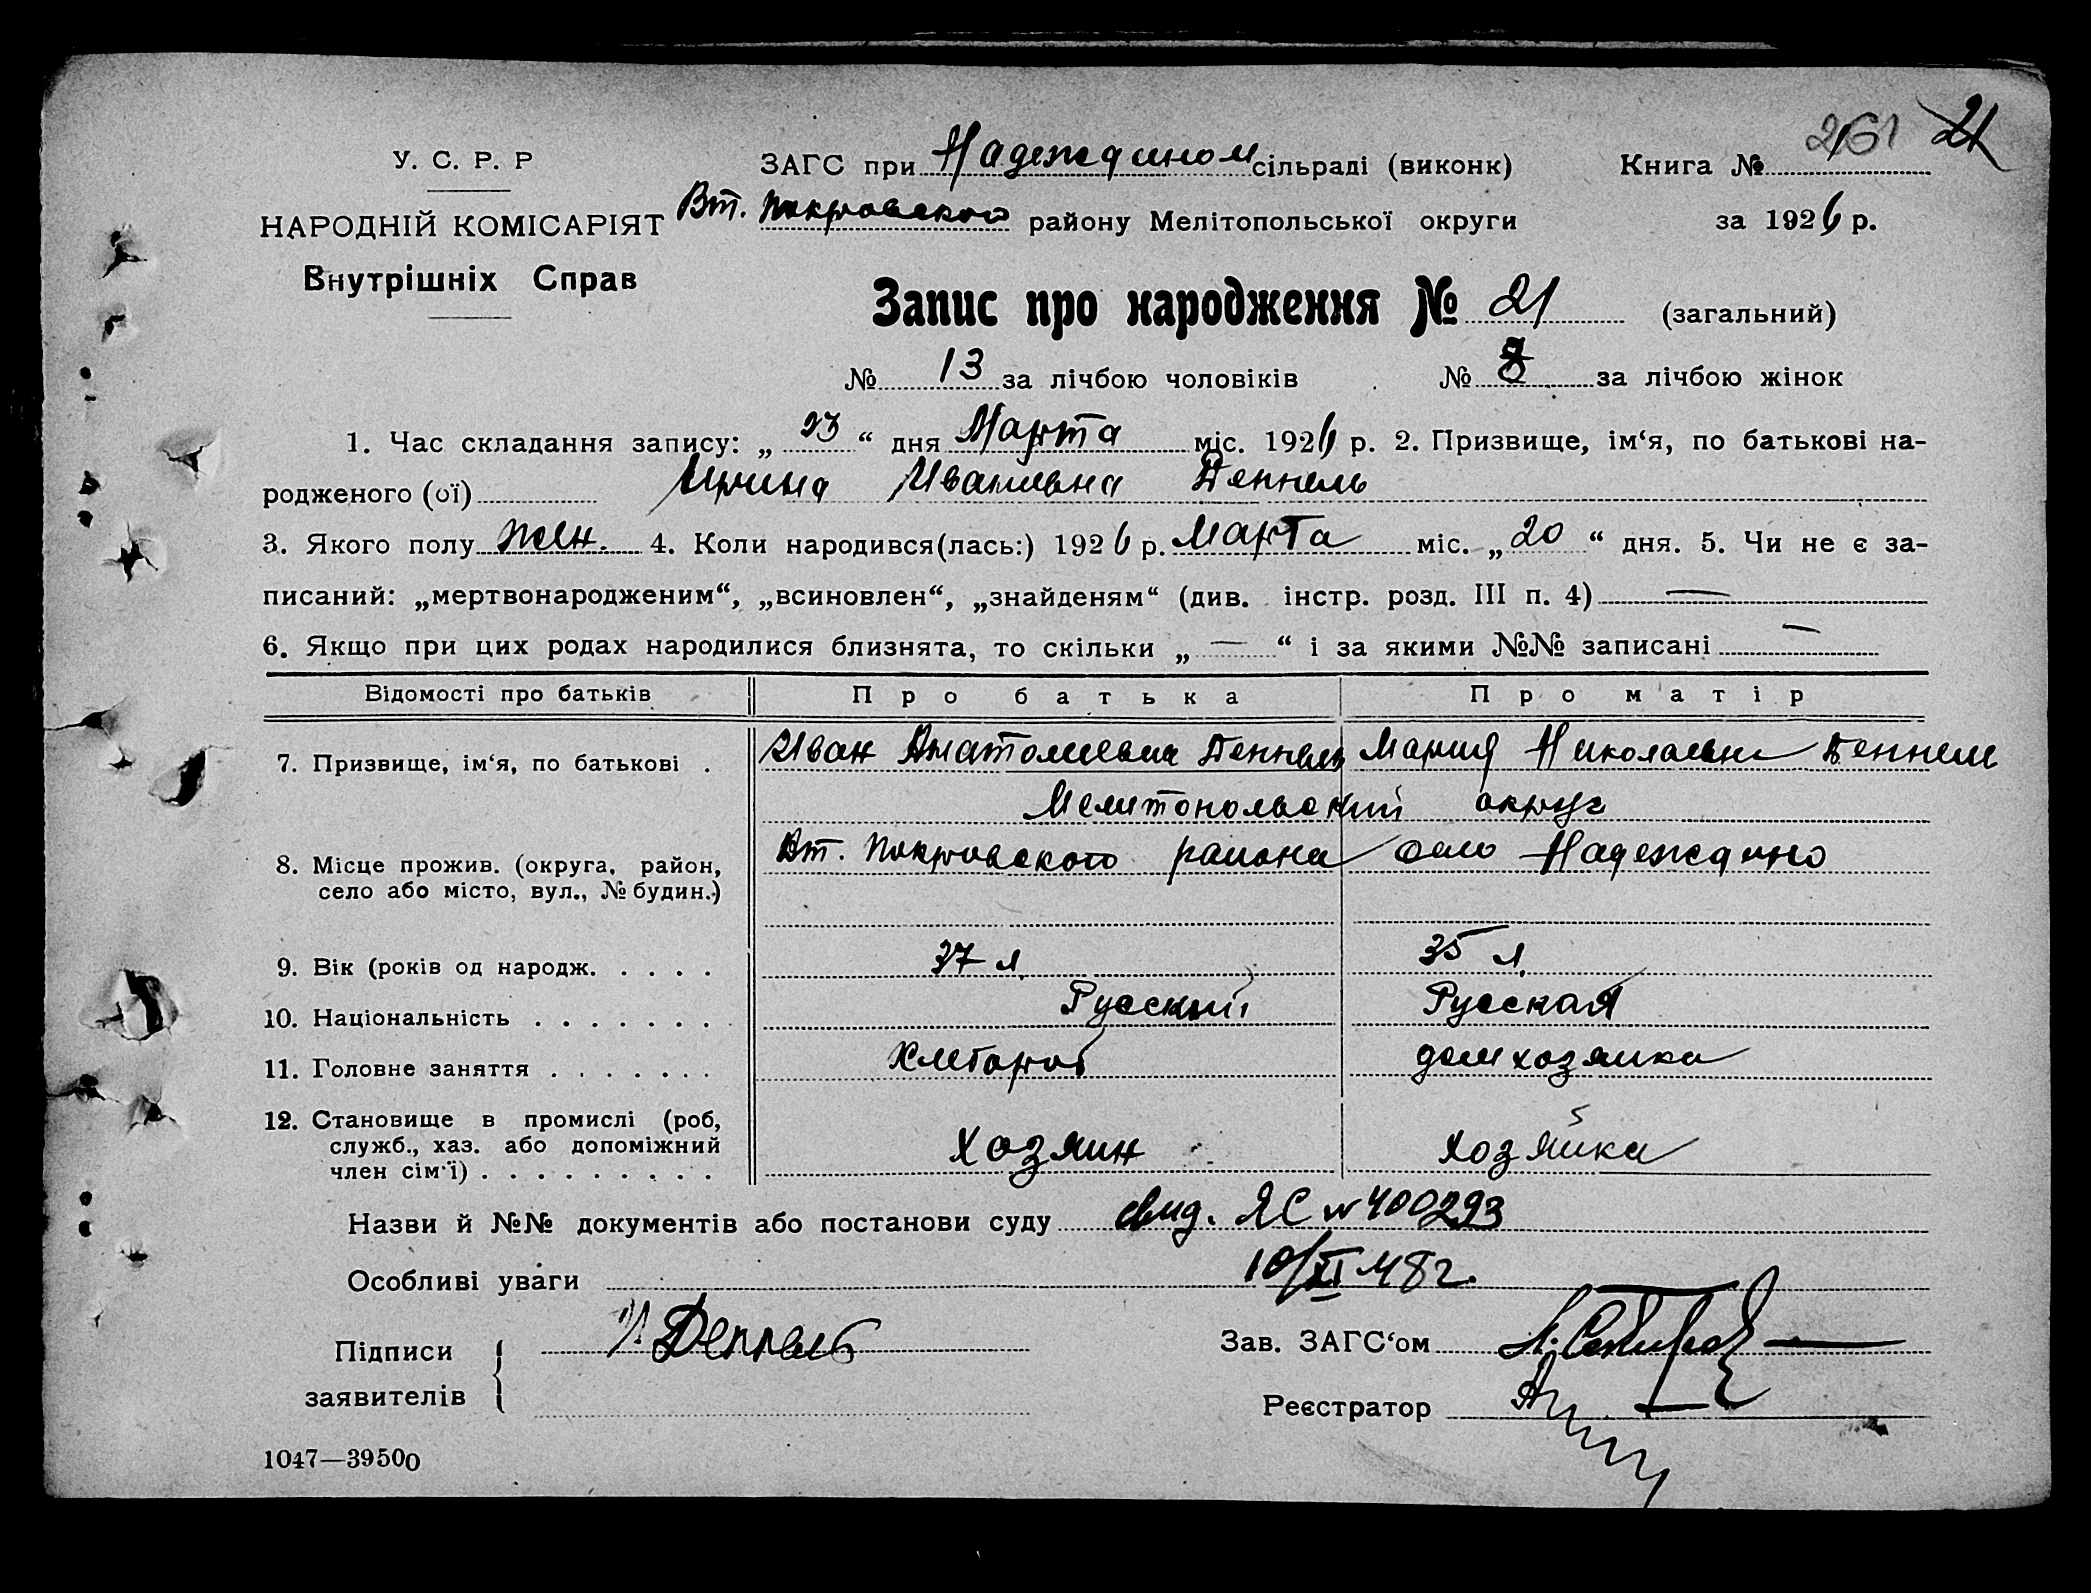 261 21
У. С. Р. Р ЗАГС при Надеждином сільраді (виконк) Книга №
НАРОДНІЙ КОМІСАРІЯТ Вт. Покровского району Мелітопольської округи за 1926 р.
Внутрішніх Справ
Запис про народження № 21 (загальний)
№ 13 за лічбою чоловіків № 8 за лічбою жінок
1. Час складання запису: „ 23 “ дня Марта міс. 1926 р. 2. Призвище, ім‘я, по батькові на-
родженого (ої) Ирина Ивановна Деппель
3. Якого полу жен. 4. Коли народився(лась:) 1926 р. Марта міс. „ 20 “ дня. 5. Чи не є за-
писаний: „мертвонародженим“, „всиновлен“, „знайденям“ (див. інстр. розд. III п. 4) —
6. Якщо при цих родах народилися близнята, то скільки „ — “ і за якими №№ записані —
Відомості про батьків Про батька Про матір
7. Призвище, ім‘я, по батькові . Иван Анатолиевич Деппель Мария Николаевна Деппель
Мелитопольский округ
8. Місце прожив. (округа, район, Вт. Покровского района село Надеждино
село або місто, вул., № будин.)
9. Вік (років од народж. . . . . 37 л. 35 л.
10. Національність . . . . . . . Русский Русская
11. Головне заняття . . . . . . . Хлебороб домхозяйка
12. Становище в промислі (роб,
служб., хаз. або допоміжний Хозяин хозяйка
член сім‘ї) . . . . . . . . .
Назви й №№ документів або постанови суду свид. ЯС № 400293
Особливі уваги 10/XI 48 г.
Підписи И Деппель Зав. ЗАГС‘ом
заявителів Реєстратор
1047—39500